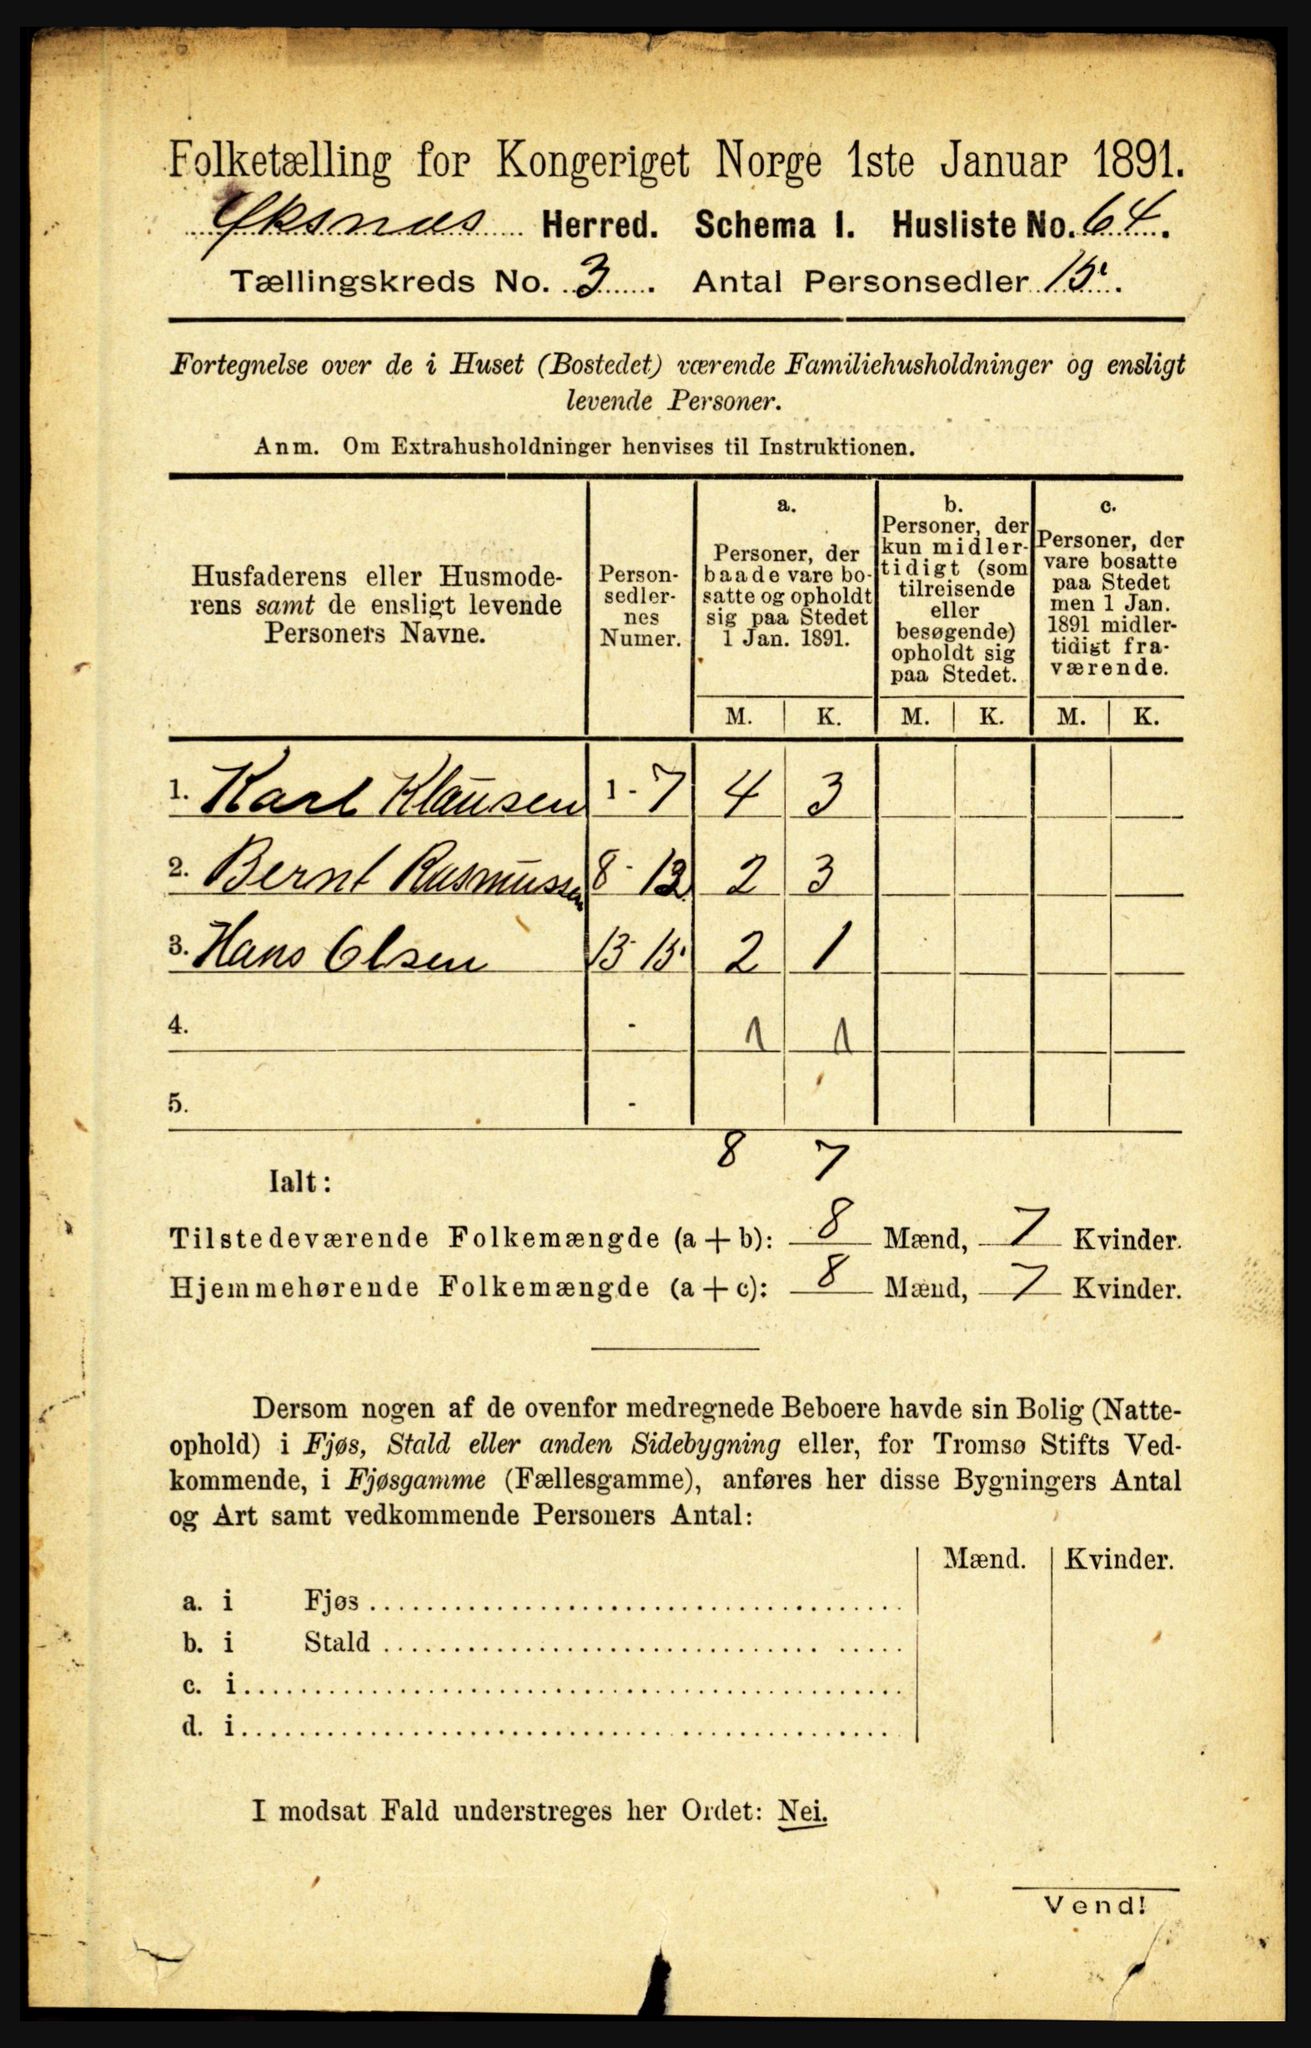 Folketælling for Kongeriget Norge 1ste Januar 1891.
Øksnæs Herred. Schema I. Husliste No. 64.
Tællingskreds No. 3. Antal Personsedler 15.
Fortegnelse over de i Huset (Bostedet) værende Familiehusholdninger og ensligt
levende Personer.
Anm. Om Extrahusholdninger henvises til Instruktionen.
Husfaderens eller Husmode-
rens samt de ensligt levende
Personers Navne.
Person-
sedler-
nes
Numer.
a.
Personer, der
baade vare bo-
satte og opholdt
sig paa Stedet
1 Jan. 1891.
b.
Personer, der
kun midler-
tidigt (som
tilreisende
eller
besøgende)
opholdt sig
paa Stedet.
c.
Personer, der
vare bosatte
paa Stedet
men 1 Jan.
1891 midler-
tidigt fra-
værende.
M. K. M. K. M. K.
1. Karl Klausen 1 - 7 4 3
2. Bernt Rasmussen 8 - 12 2 3
3. Hans Olsen 13 - 15 2 1
4. - 1 1
5. -
Ialt: 8 7
Tilstedeværende Folkemængde (a + b): 8 Mænd, 7 Kvinder.
Hjemmehørende Folkemængde (a + c): 8 Mænd, 7 Kvinder.
Dersom nogen af de ovenfor medregnede Beboere havde sin Bolig (Natte-
ophold) i Fjøs, Stald eller anden Sidebygning eller, for Tromsø Stifts Ved-
kommende, i Fjøsgamme (Fællesgamme), anføres her disse Bygningers Antal
og Art samt vedkommende Personers Antal:
Mænd. Kvinder.
a. i Fjøs
b. i Stald
c. i
d. i
I modsat Fald understreges her Ordet: Nei.
Vend!